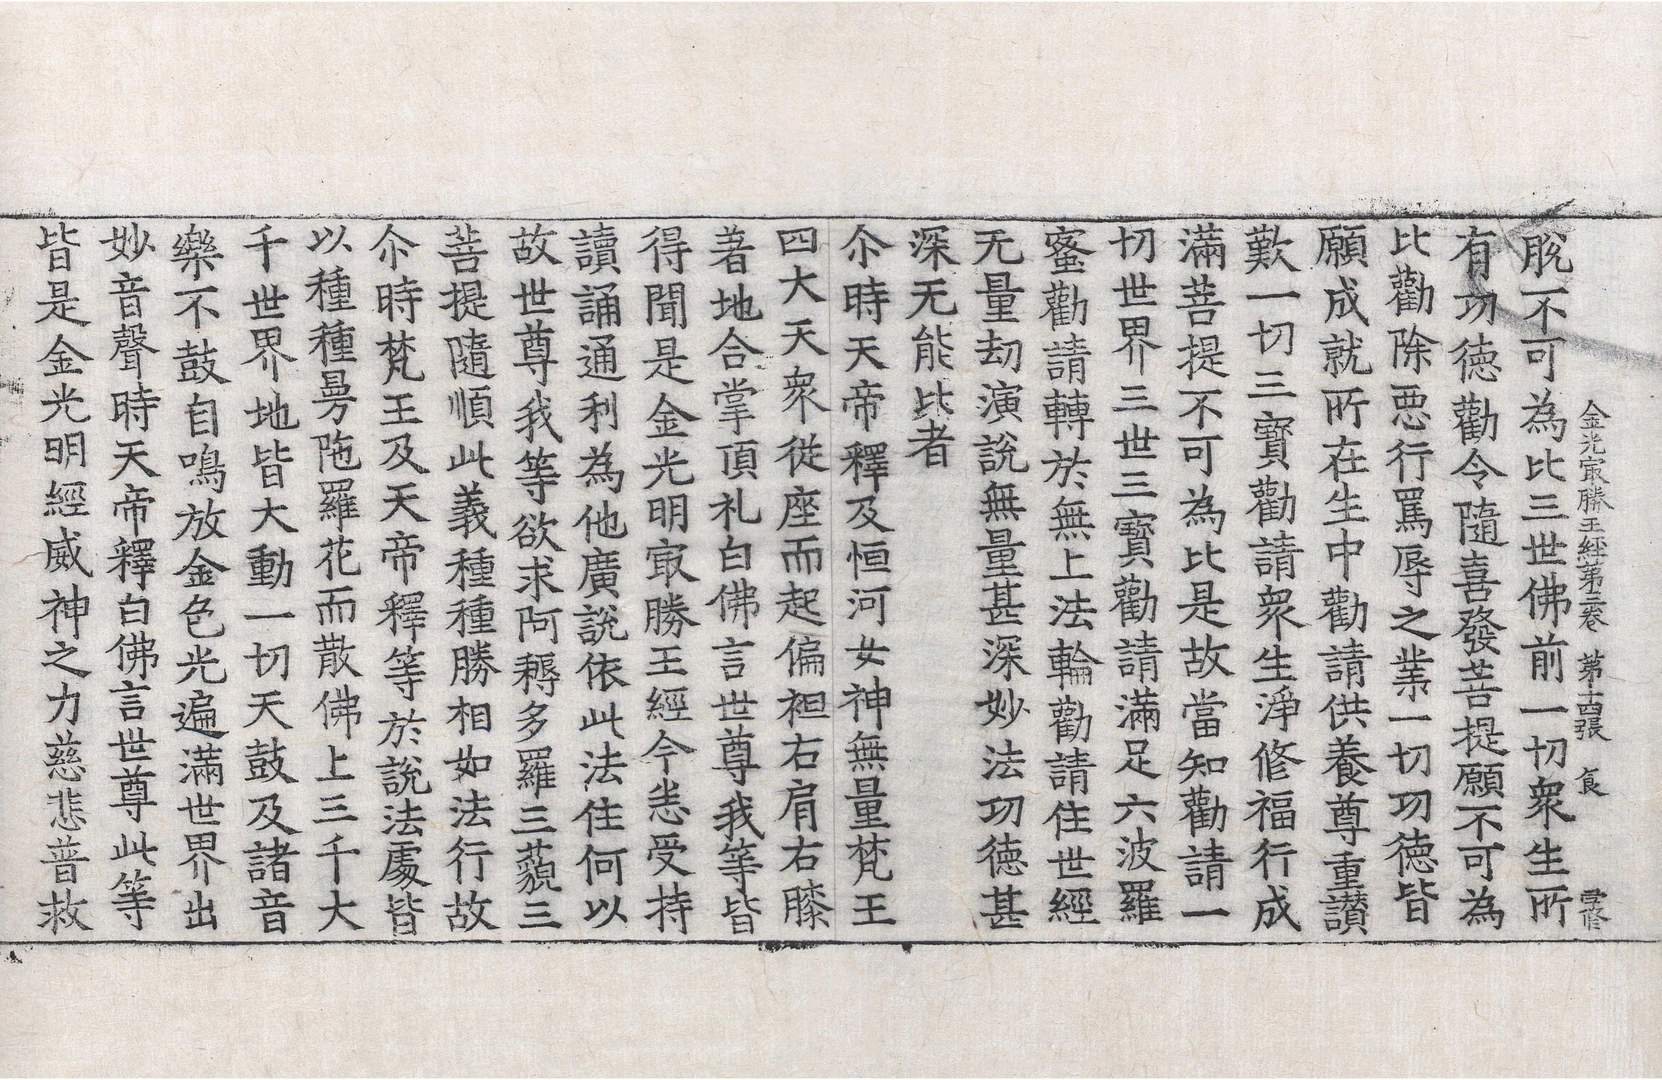 金光㝡勝王經第三卷　第十四張　食
脫不可為比三世佛前一切衆生所
有功德勸令隨喜發菩提願不可為
比勸除惡行罵辱之業一切功德皆
願成就所在生中勸請供養尊重讃
歎一切三寳勸請衆生淨修福行成
滿菩提不可為比是故當知勸請一
切世界三世三寳勸請滿足六波羅
蜜勸請轉於無上法輪勸請住世經
无量劫演說無量甚深妙法功德甚
深无能比者
尒時天帝釋及恒河女神無量梵王
四大天衆從座而起偏袒右肩右膝
著地合掌頂礼白佛言世尊我等皆
得聞是金光明㝡勝王經今悉受持
讀誦通利為他廣說依此法住何以
故世尊我等欲求阿耨多羅三藐三
菩提隨順此義種種勝相如法行故
尒時梵王及天帝釋等於說法處皆
以種種曼陁羅花而散佛上三千大
千世界地皆大動一切天鼓及諸音
樂不鼓自鳴放金色光遍滿世界出
妙音聲時天帝釋白佛言世尊此等
皆是金光明經威神之力慈悲普救